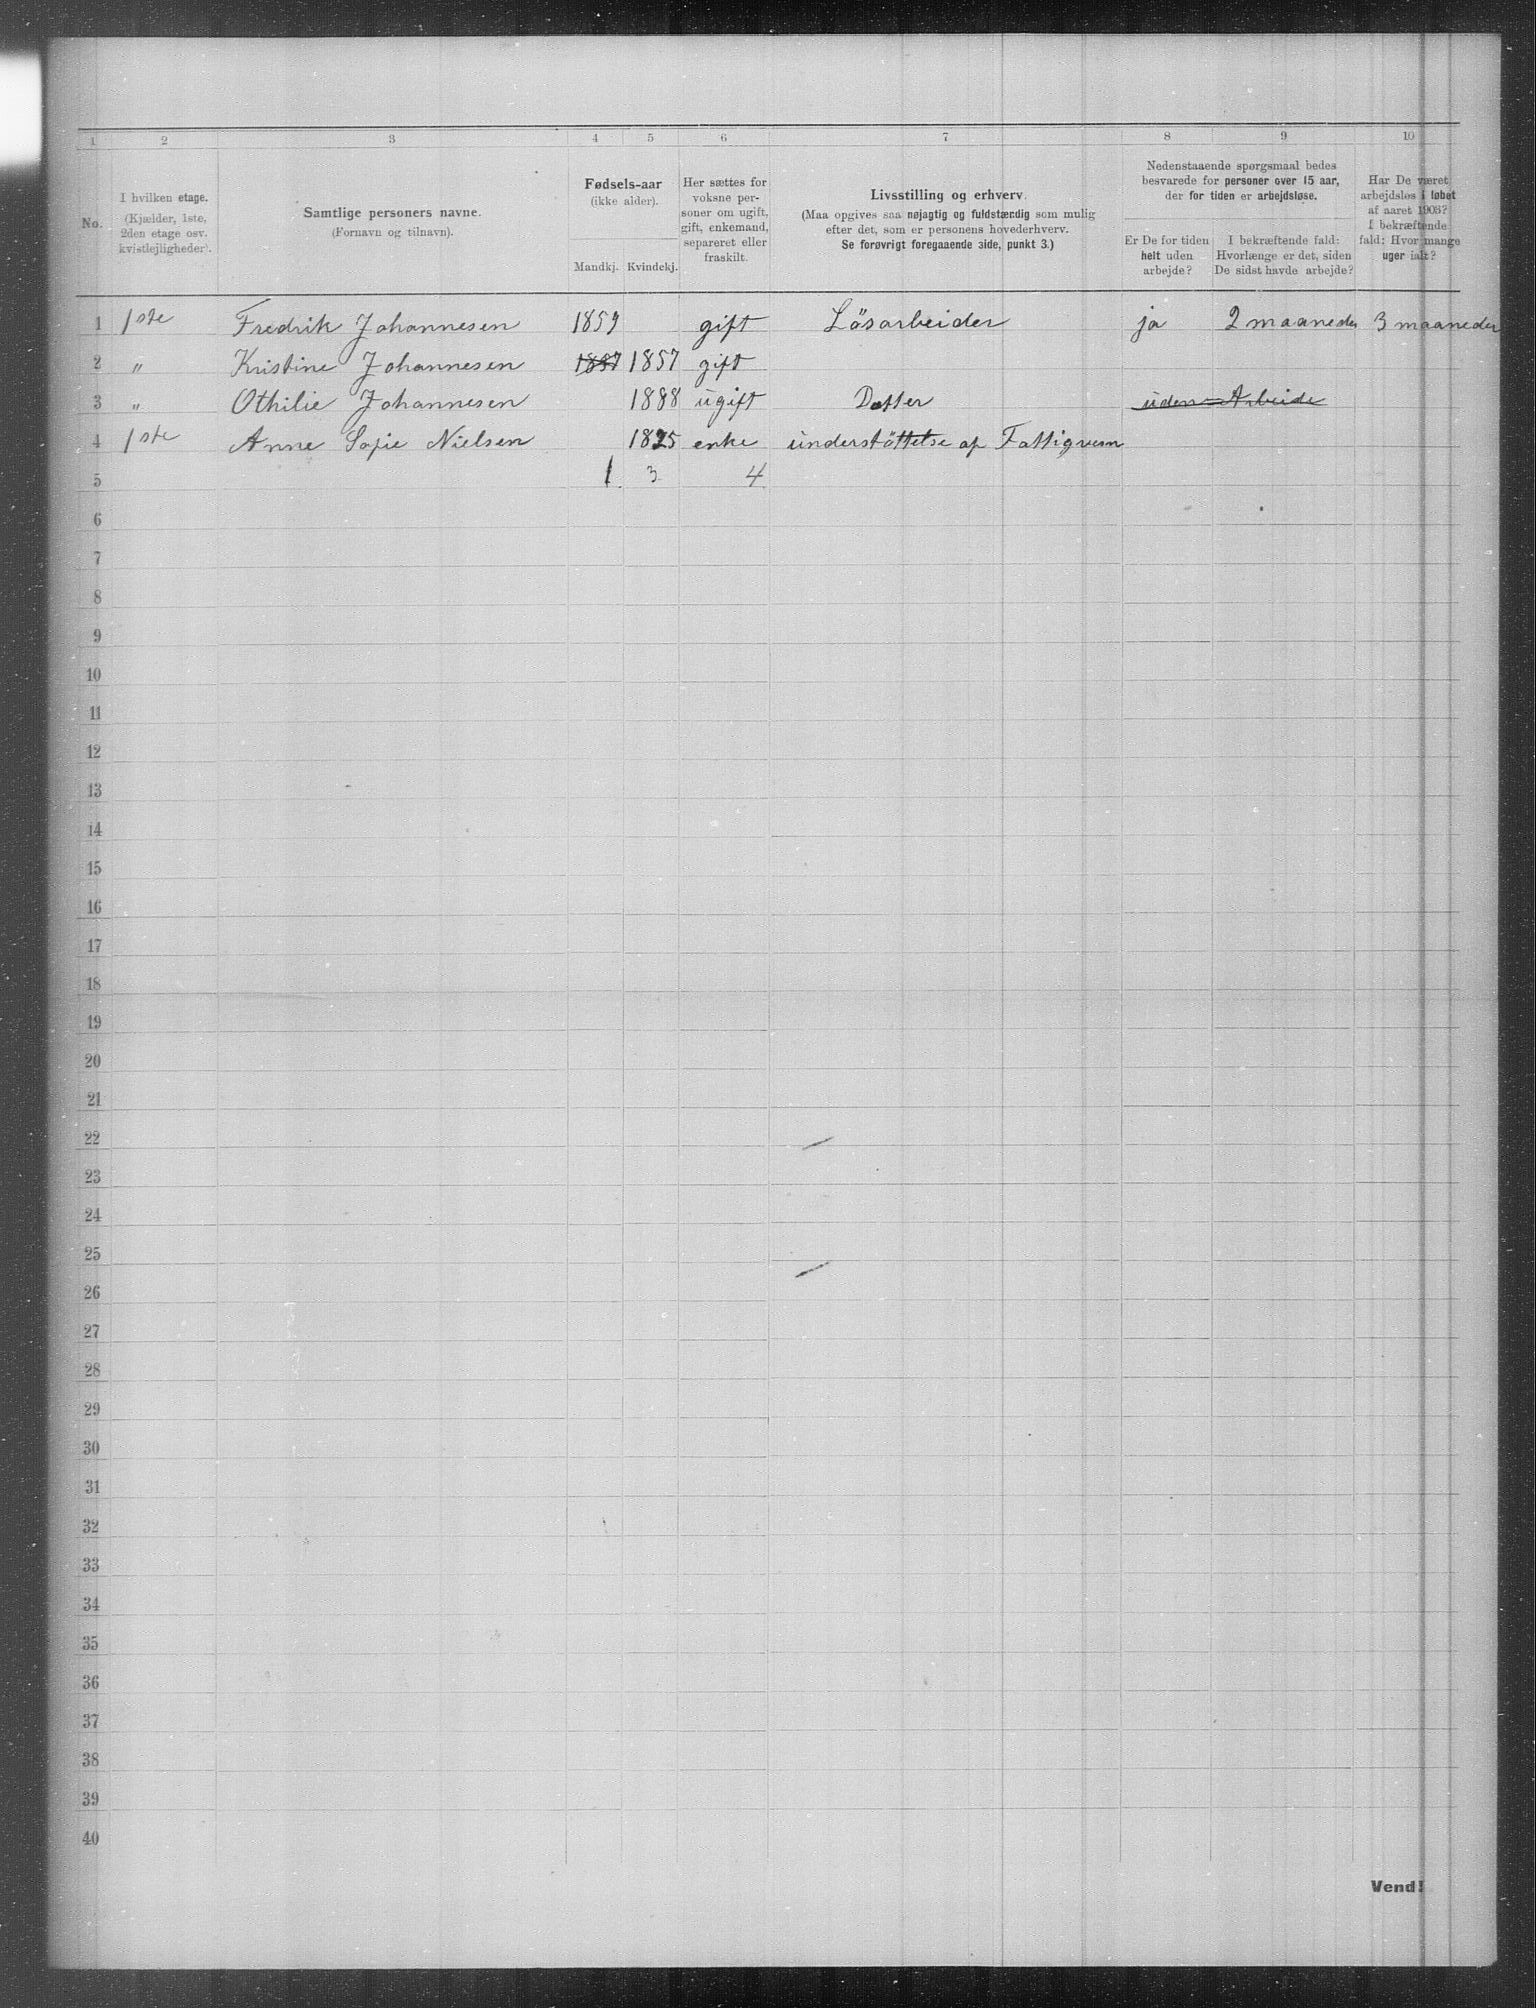 1 2 3 4 5 6 7 8 9 10
No.
I hvilken etage.
(Kjælder, 1ste,
2den etage osv.
kvistlejligheder).
Samtlige personers navne.
(Fornavn og tilnavn).
Fødsels-aar
(ikke alder).
Mandkj. Kvindekj.
Her sættes for
voksne per-
soner om ugift,
gift, enkemand,
separeret eller
fraskilt.
Livsstilling og erhverv.
(Maa opgives saa nøjagtig og fuldstændig som mulig
efter det, som er personens hovederhverv.
Se forøvrigt foregaaende side, punkt 3.)
Nedenstaaende spørgsmaal bedes
besvarede for personer over 15 aar,
der for tiden er arbejdsløse.
Er De for tiden
helt uden
arbejde?
I bekræftende fald:
Hvorlænge er det, siden
De sidst havde arbejde?
Har De været
arbejdsløs i løbet
af aaret 1903?
I bekræftende
fald: Hvor mange
uger ialt?
1 1ste Fredrik Johannesen 1859 gift Lösarbeider ja 2 maaneder 3 maaneder
2 " Kristine Johannesen 1857 1857 gift
3 " Othilie Johannesen 1888 ugift Datter uden Arbeide
4 1ste Anne Sofie Nielsen 1825 enke understöttelse af Fattigvesn
5 1 3 4
6
7
8
9
10
11
12
13
14
15
16
17
18
19
20
21
22
23
24
25
26
27
28
29
30
31
32
33
34
35
36
37
38
39
40
Vend!